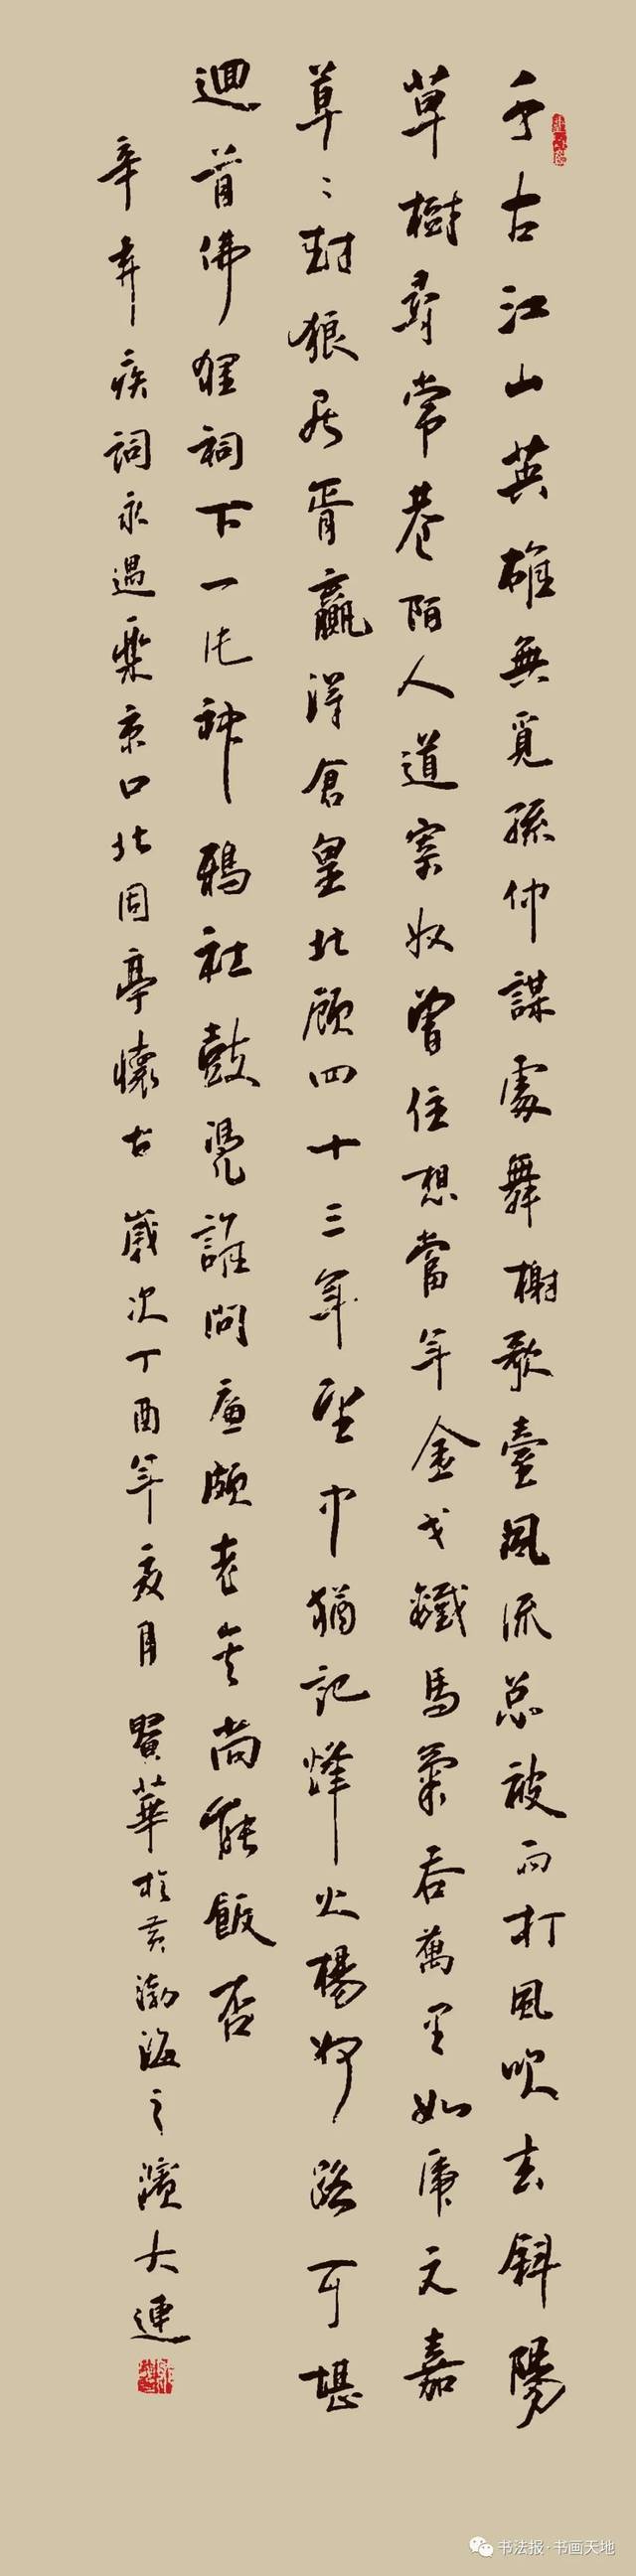 千古江山英雄無覓孫仲謀處舞榭歌臺風流总被雨打風吹去斜陽
草樹尋常巷陌人道寄奴曾住想當年金戈鐵馬氣吞萬里如虎元嘉
草々封狼居胥贏得倉皇北顧四十三年望中猶記烽火楊州路可堪
迴首佛狸祠下一片神鴉社鼓凭誰問廉頗老矣尚能飯否
辛弃疾詞永遇樂京口北固亭懷古 歲次丁酉年亥月 賢華於黃渤海之濱大連
书法报·书画天地